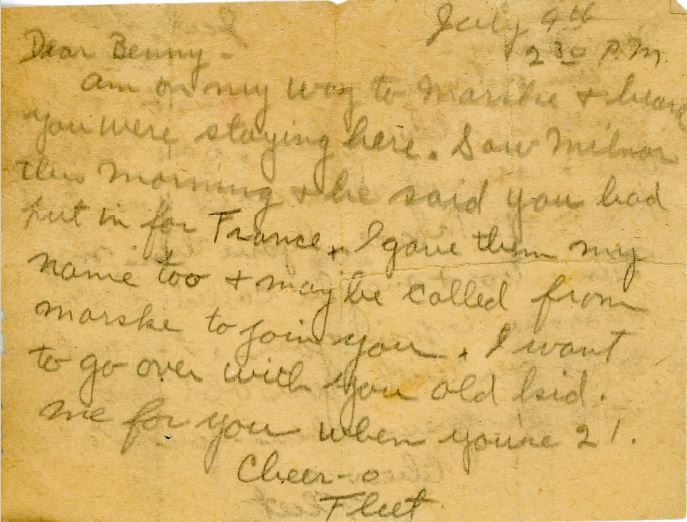 July 9th
2 30 P.M.
Dear Benny-
am on my way to Marske + heard
you were staying here. Saw Milnor
this morning + he said you had
put in for France. I gave them my
name too + may be called from
marske to join you. I want
to go over with you old kid.
me for you when you're 21.
Cheer-o
Fleet